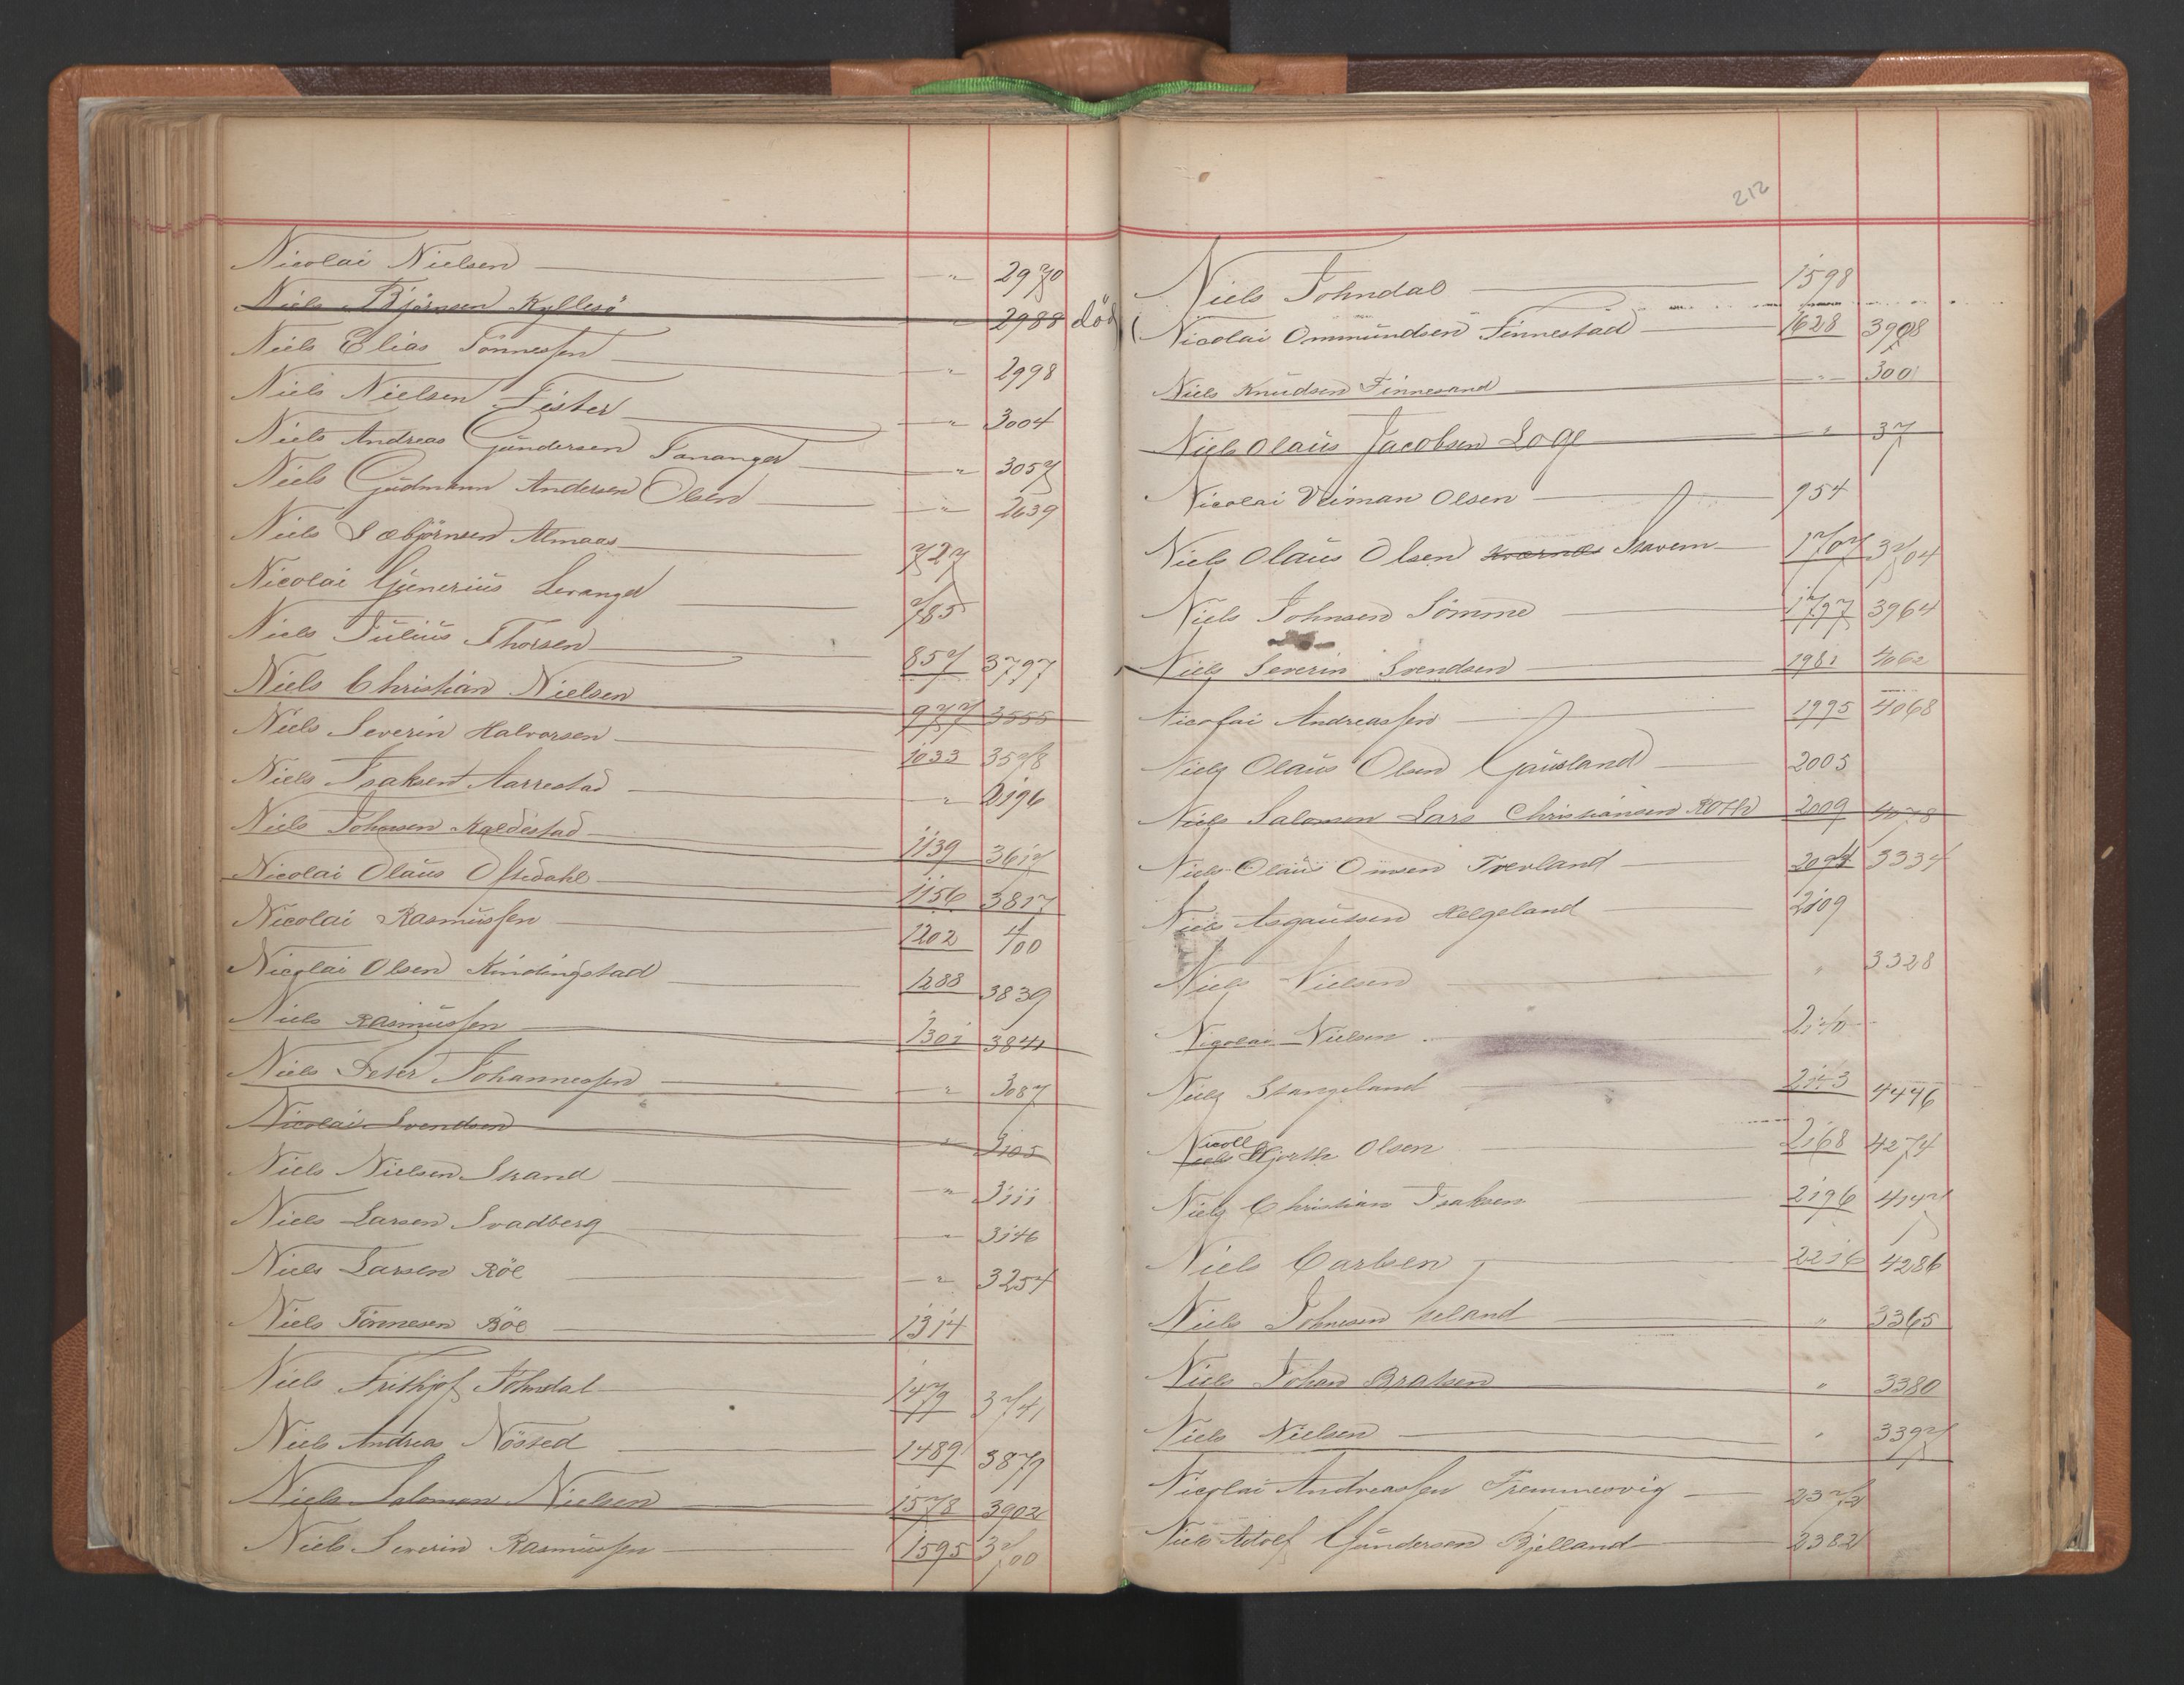 Nicolai Nielsen — " 2970
Niels Björnsen Kyllesö " 2988 död
Niels Elias Tönnessen — " 2998
Niels Nielsen Fister — " 3004
Niels Andreas Gundersen Tananger — " 3057
Niels Gudmann Andersen Olsen — " 2639
Niels Sæbjörnsen Almaas — 727
Nicolai Gunerius Levanger — 785
Niels Julius Thorsen — 857 3797
Niels Christian Nielsen 977 3555
Niels Severin Halvorsen — 1033 3578
Niels Isaksen Aarrestad — " 2196
Niels Johnsen Kaldestad — 1139 3617
Nicolai Olaus Oftedahl — 1156 3817
Nicolai Rasmussen — 1202 400
Nicolai Olsen Kindingstad — 1288 3839
Niels Rasmussen — 1301 3841
Niels Peter Johannessen — " 3087
Nicolai Svendsen " 3105
Niels Nielsen Strand — " 3111
Niels Larsen Svadberg — " 3146
Niels Larsen Röe — " 3254
Niels Tönnesen Böe — 1314
Niels Frithjof Johndal — 1479 3741
Niels Andreas Nösted — 1489 3879
Niels Salomon Nielsen — 1578 3902
Niels Severin Rasmussen — 1595 3700
212
Niels Johndal — 1598
Nicolai Ommundsen Finnestad — 1628 3908
Niels Knudsen Finnesand — " 300
Niels Olaus Jacobsen Loge — " 37
Nicolai Olsen — 954
Niels Olaus Olsen Kvernes Stavem — 1707 3704
Niels Johnsen Sömme — 1797 3964
Niels Severin Svendsen — 1981 4062
Nicolai Andreassen — 1995 4068
Niels Olaus Olsen Gausland — 2005
Niels Salomon Lars Christiansen Roth 2009 4078
Niels Olaus Omsen Tverland — 2094 3334
Niels Asgautsen Helgeland — 2109
Niels Nielsen — " 3328
Nicolai Nielsen — 2140
Niels Stangeland — 2143 4446
Nicoll
Niels Hjorth Olsen — 2168 4274
Niels Christian Isaksen — 2196 4147
Niels Carlsen — 2216 4286
Niels Johnesen Heland — " 3365
Niels Johan Bratsen — " 3380
Niels Nielsen — " 3397
Nicolai Andreassen Tremmervig — 2373
Niels Adolf Gundersen Bjelland — 2382